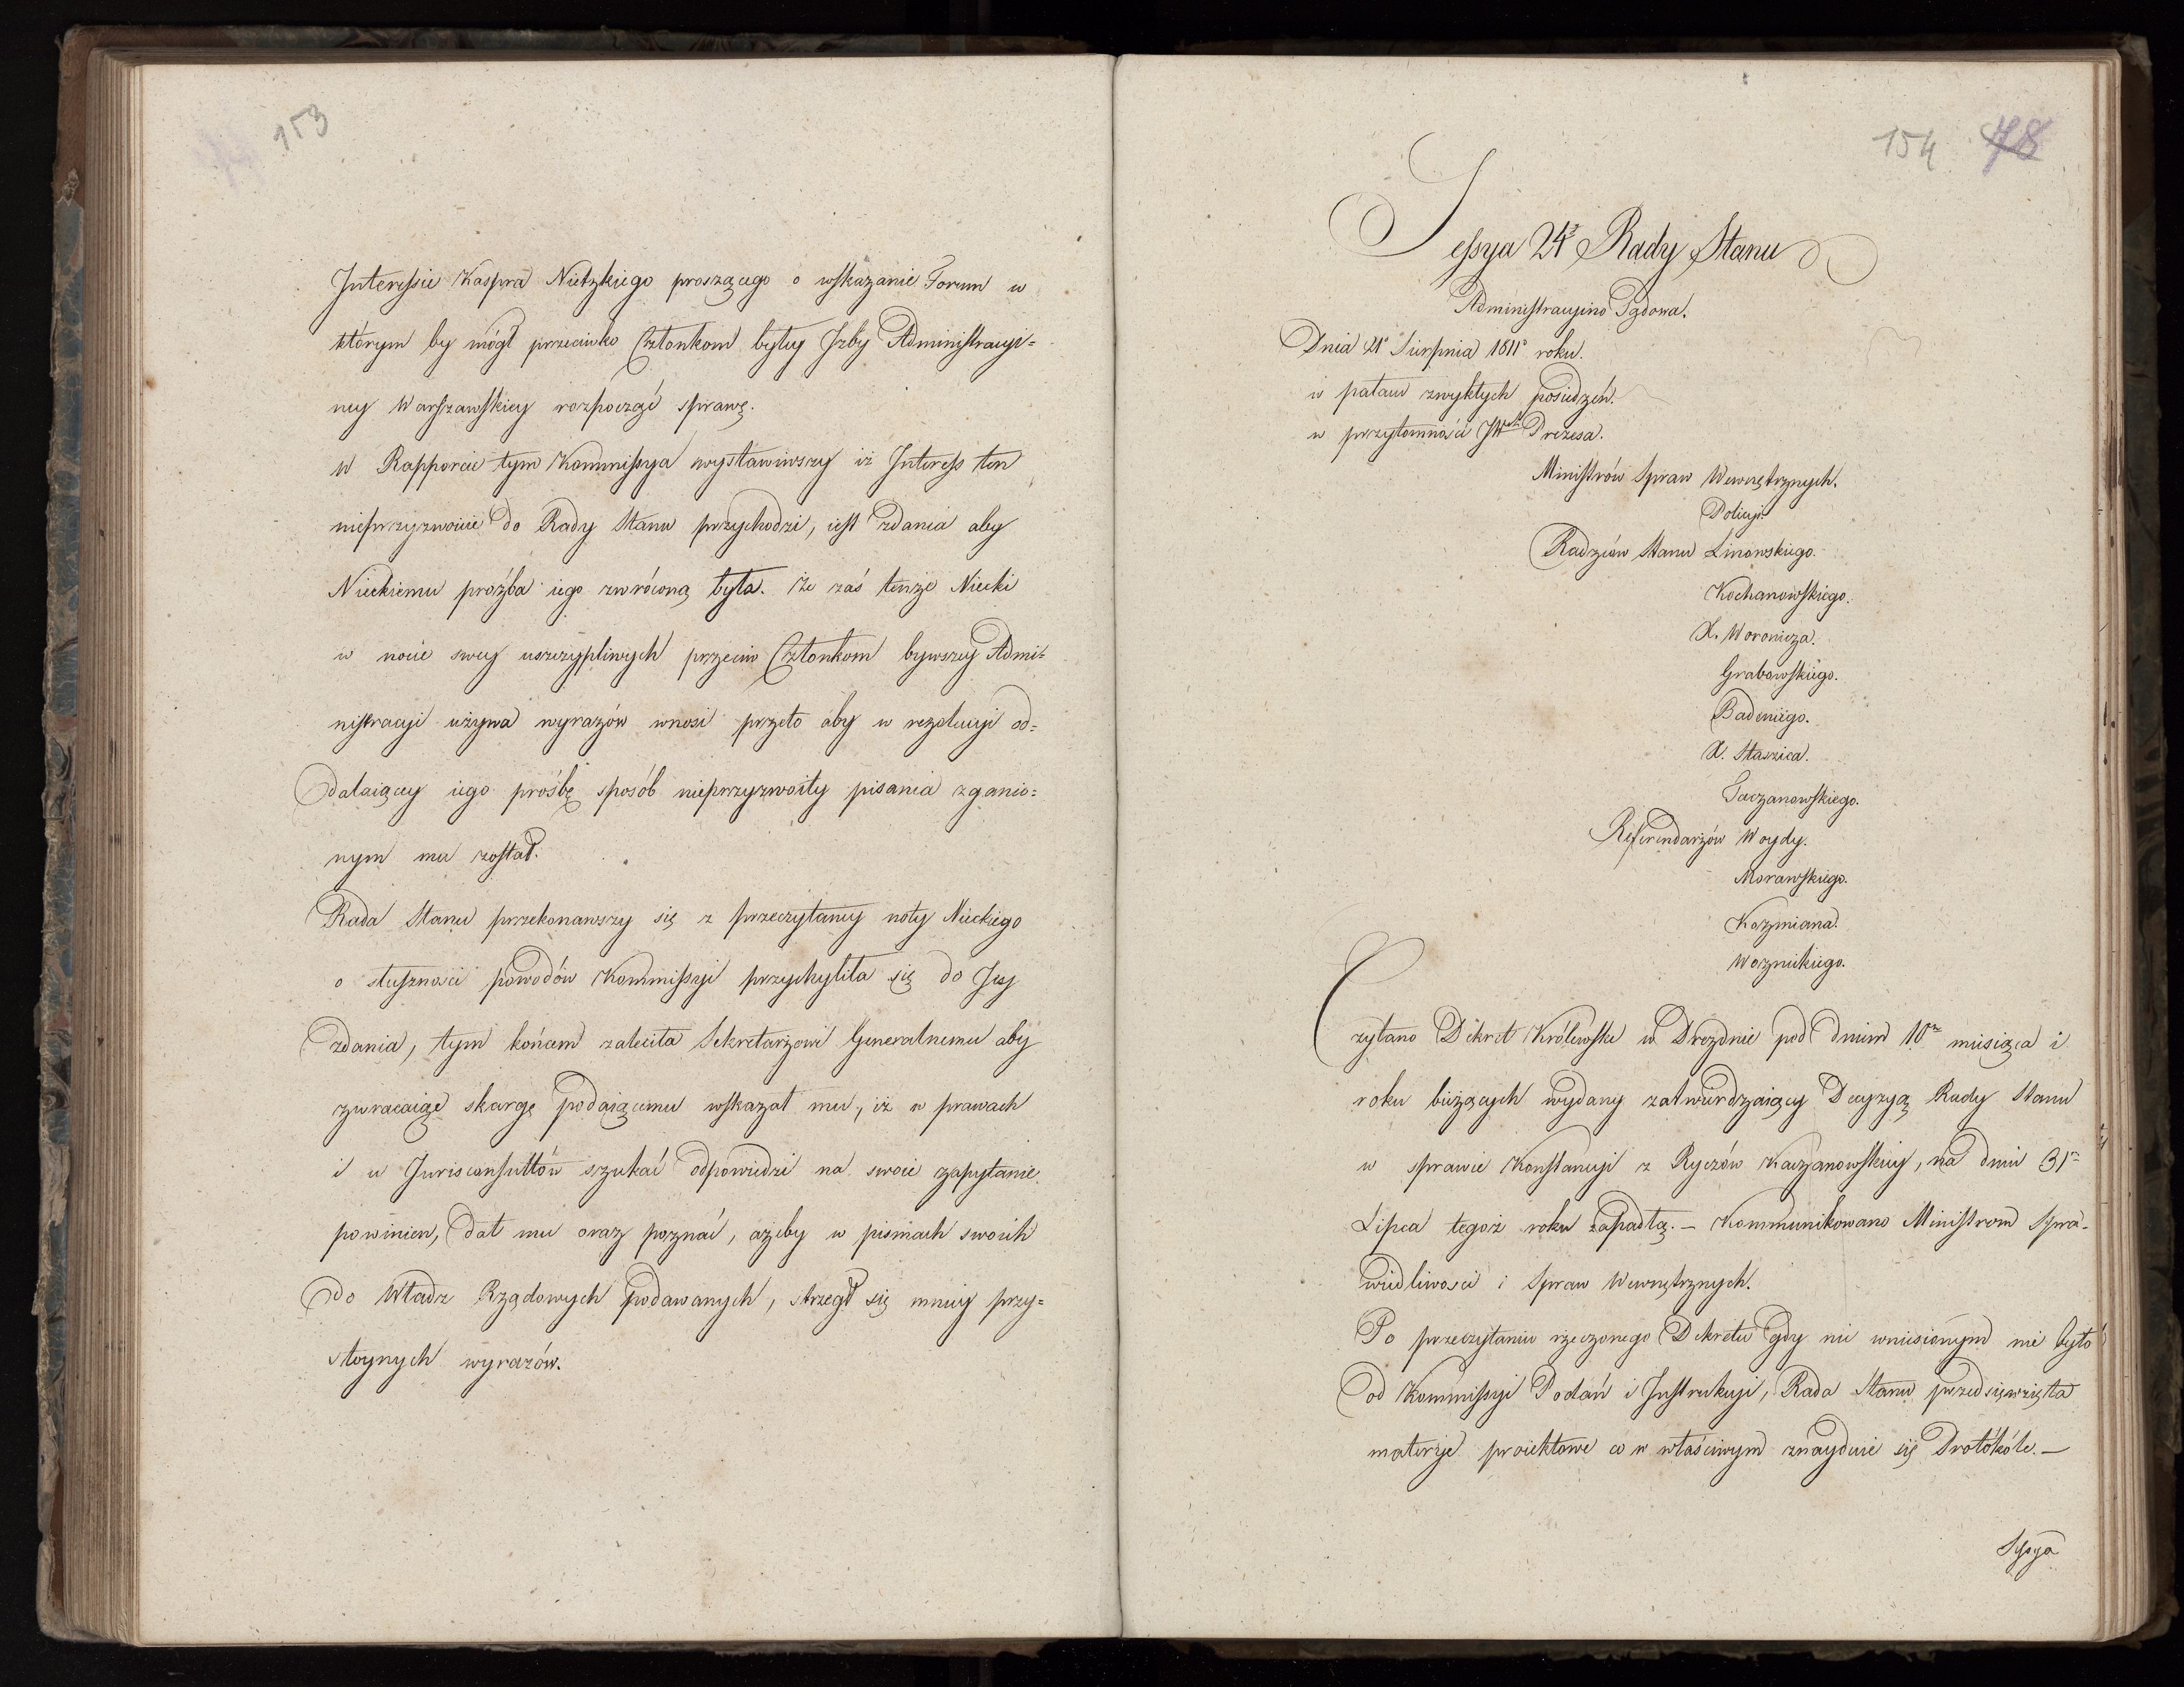 153
Interessie Kaspra Nietzkiego proszącego o wskazanie Forum w
którym by mógł przeciwko Członkom byłey Izby Administracyi=
ney Warszawskiey rozpocząć sprawę.
W Rapporcie tym Kommissya wystawiwszy iż Interess ten
nieprzyzwoicie do Rady Stanu przychodzi, iest zdania aby
Nieckiemu prożba iego zwróconą była. Że zaś tenże Niecki
w nocie swey uszczypliwych przeciw Członkom bywszey Admi=
nistracyi używa wyrazów wnosi przeto aby w rezolucyi od=
dalaiącey iego prośbę sposób nieprzyzwoity pisania zganio=
nym mu został.
Rada Stanu przekonawszy się z przeczytaney noty Nieckiego
o słuszności powodów Kommissyi przychyliła się do Jey
zdania, tym końcem zaleciła Sekretarzowi Generalnemu aby
zwracaiąc skargę podaiącemu wskazał mu, iż w prawach
i u Jurisconsultów szukać odpowiedzi na swoie zapytanie
powinien, dał mu oraz poznać, ażeby w pismach swoich
do Władz Rządowych podawanych, strzegł się mniey przy=
stoynych wyrazów.
154 78
Sessya 24ª Rady Stanu
Administracyino Sądowa.
Dnia 21º Sierpnia 1811º roku.
w pałacu zwykłych posiedzeń.
w przytomności JWgo Prezesa.
Ministrów Spraw Wewnętrznych.
Policyi.
Radzców Stanu Linowskiego.
Kochanowskiego.
X. Woronicza.
Grabowskiego.
Badeniego.
X. Staszica.
Taczanowskiego.
Referendarzów Woydy.
Morawskiego.
Kozmiana.
Woznickiego.
Czytano Dekret Królewski w Dreznie pod dniem 10m miesiąca i
roku bieżących wydany zatwierdzaiący Decyzyą Rady Stanu
w sprawie Konstancyi z Ryczów Kaczanowskiey, na dniu 31m
Lipca tegoż roku zapadłą. — Kommunikowano Ministrom Spra-
wiedliwości i Spraw Wewnętrznych.
Po przeczytaniu rzeczonego Dekretu gdy nic wniesionym nie było
od Kommissyi Podań i Instrukcyi, Rada Stanu przedsięwzięła
materye proiektowe co w właściwym znayduie się Protókóle. —
Sessya